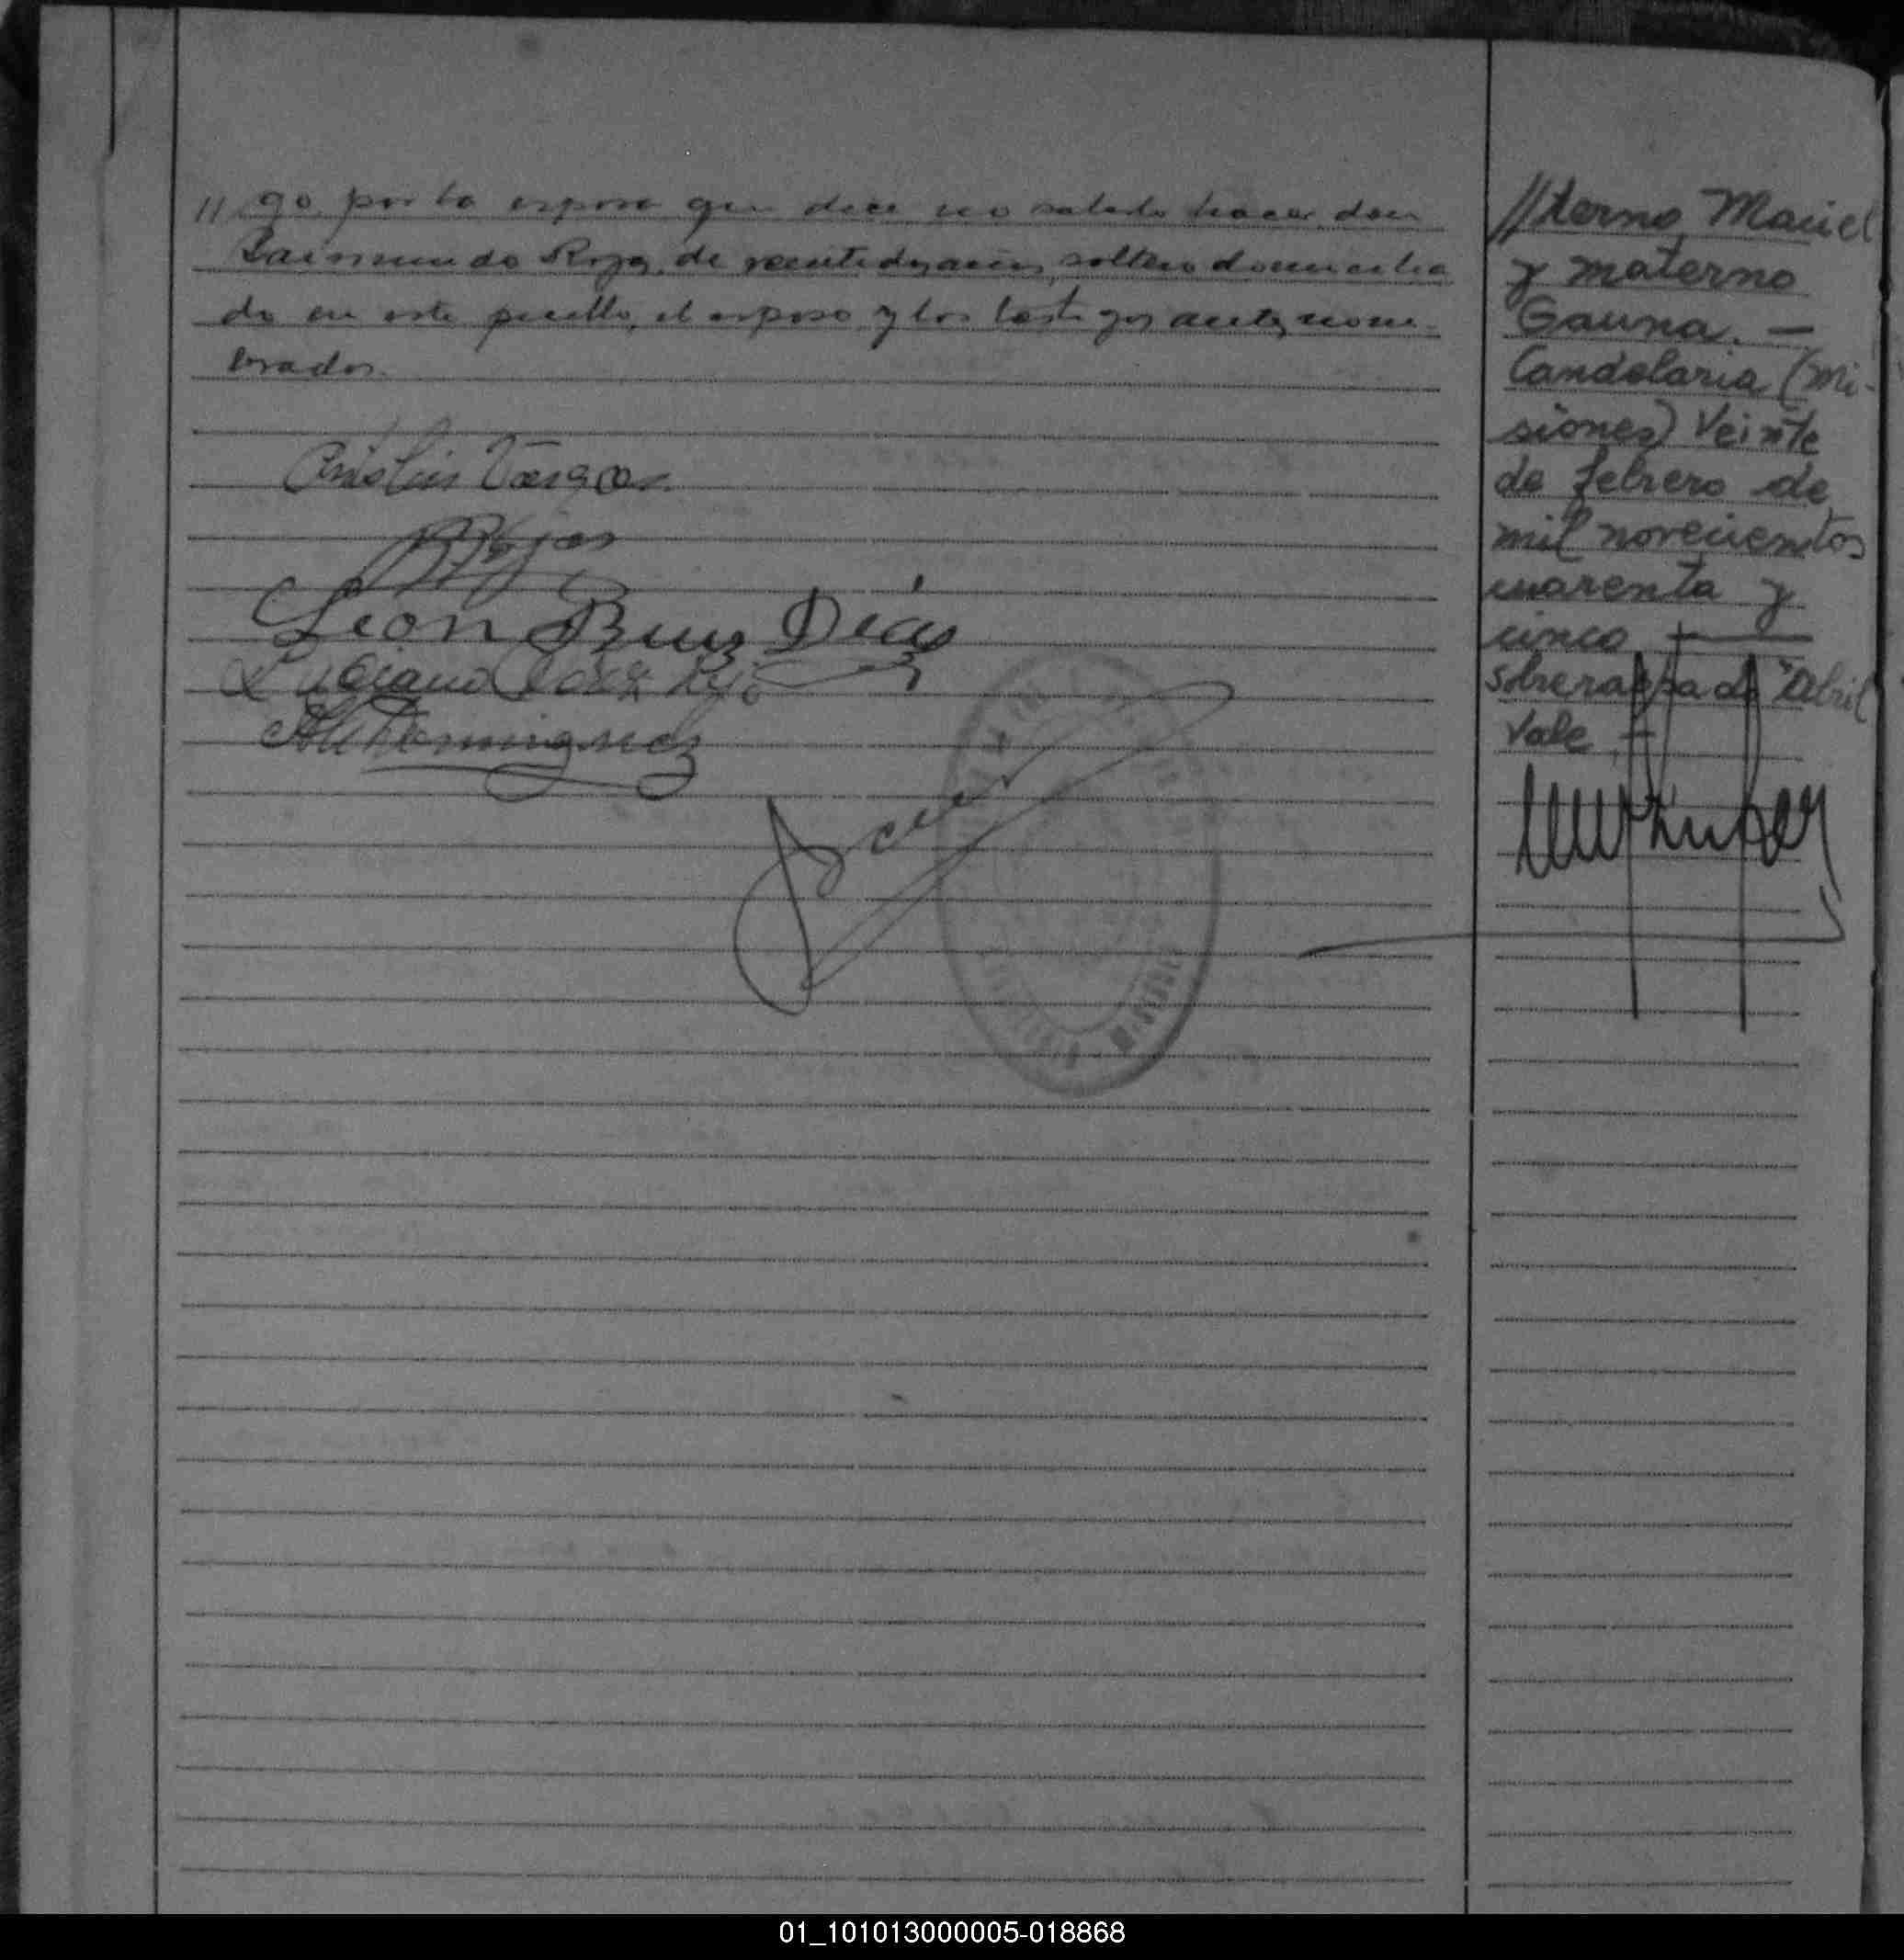 // go, por la esposa que dice no saberlo hacer, don
Raimundo Rojas, de veintidos años, soltero domicilia
do en este pueblo, el esposo y los testigos antes nom-
brados.
Vargas
Rojas
Leon Ruiz Dias
Luciano Lopez hijo
Dominguez
//terno Maciel
y materno
Gauna. —
Candelaria (Mi-
siones) Veinte
de febrero de
mil novecientos
cuarenta y
cinco
Sobreraspado "Abril"
Vale —
01_101013000005-018868